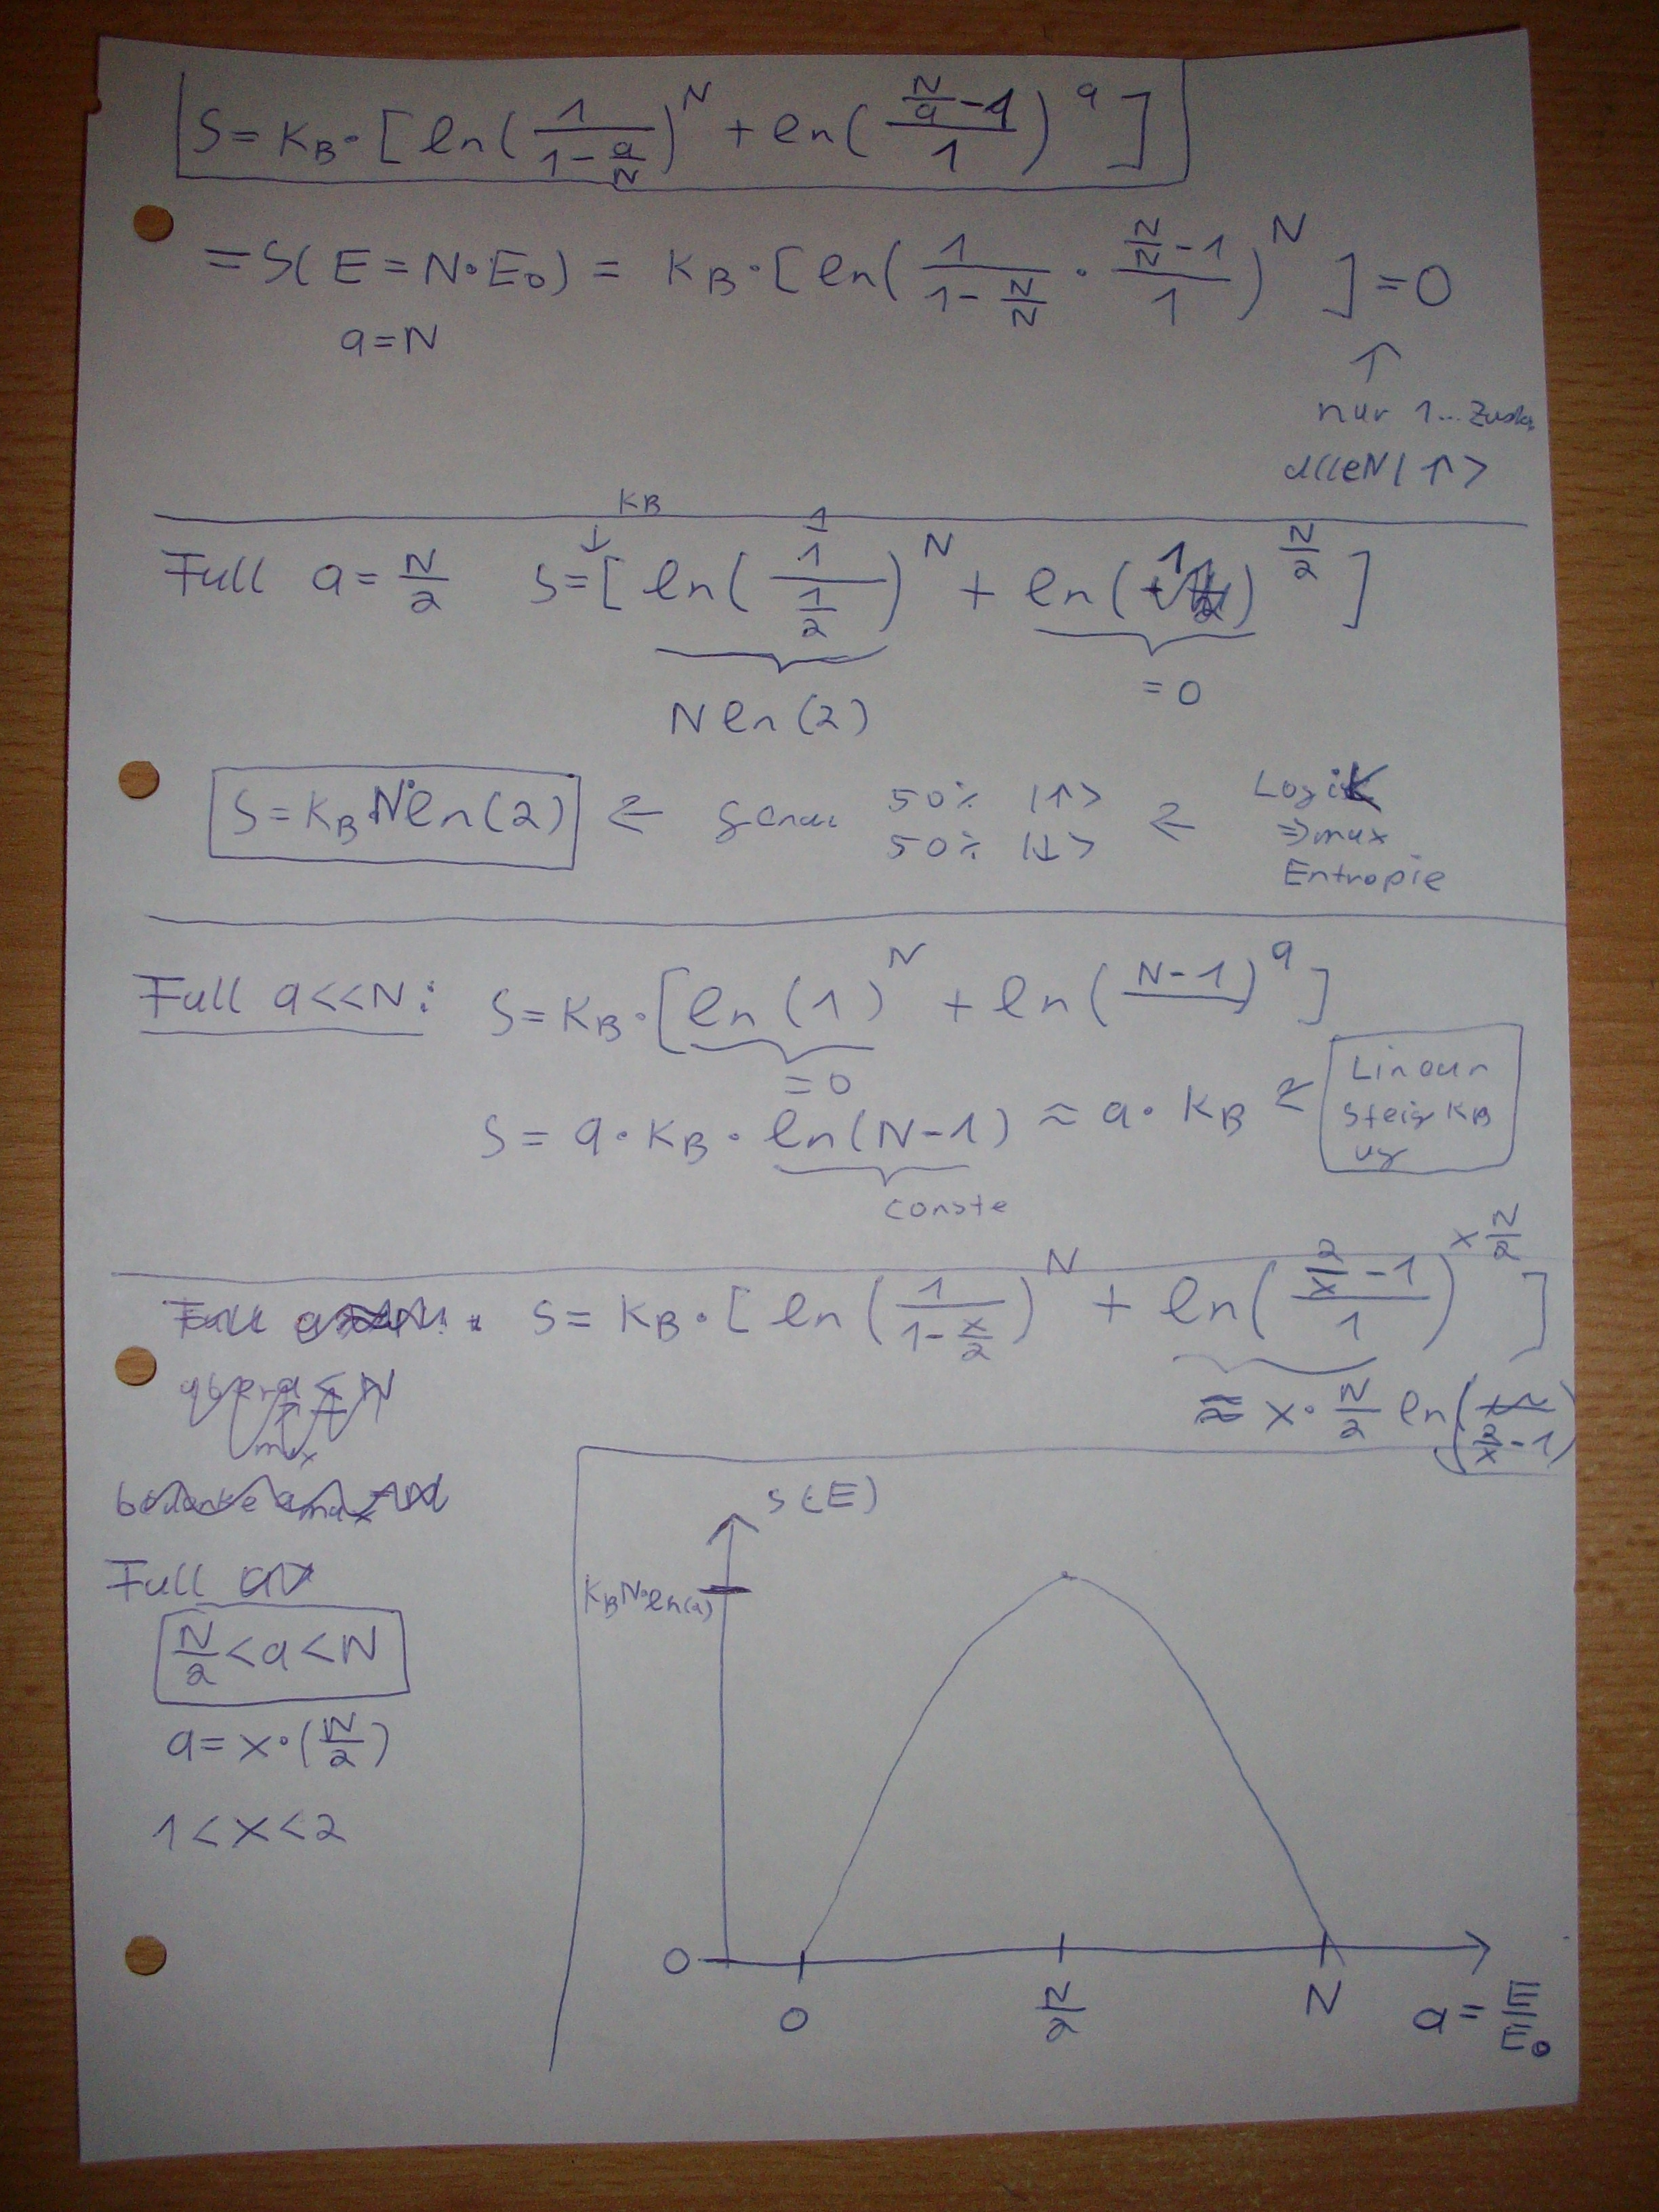 S = K_B · [ ln( 1 / (1 - a/N) )^N + ln( (N/a - 1) / 1 )^a ]
= S( E = N · E_0 ) = K_B · [ ln( 1 / (1 - N/N) · (N/N - 1) / 1 )^N ] = 0
a = N
↑
nur 1...
alle N | ↑ >
K_B
↓
Fall a = N/2 S = [ ln( 1 / (1/2) )^N + ln( 1 )^(N/2) ]
N ln(2)
= 0
S = K_B N · ln(2) ← genau 50% | ↑ > ← Logik
50% | ↓ > ⇒ max
Entropie
Fall a << N: S = K_B · [ ln (1)^N + ln ( N - 1 )^a ]
= 0
S = a · K_B · ln(N - 1) ≈ a · K_B ← Linear
conste
S = K_B · [ ln( 1 / (1 - x/2) )^N + ln( (2/x - 1) / 1 )^(x N/2) ]
≈ x · N/2 ln( 2/x - 1 )
Fall
N/2 < a < N
a = x · (N/2)
1 < x < 2
S(E)
K_B N · ln(2)
0
0 N/2 N a = E/E_0